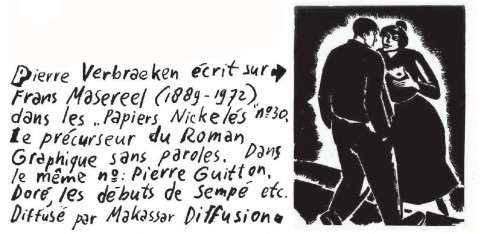 Pierre Verbraeken écrit sur➔
Frans Masereel (1889-1972)
dans les „Papiers Nickelés" nº30.
Le précurseur du Roman
Graphique sans paroles. Dans
le même nº: Pierre Guitton,
Doré, les débuts de Sempé etc.
Diffusé par Makassar Diffusion.